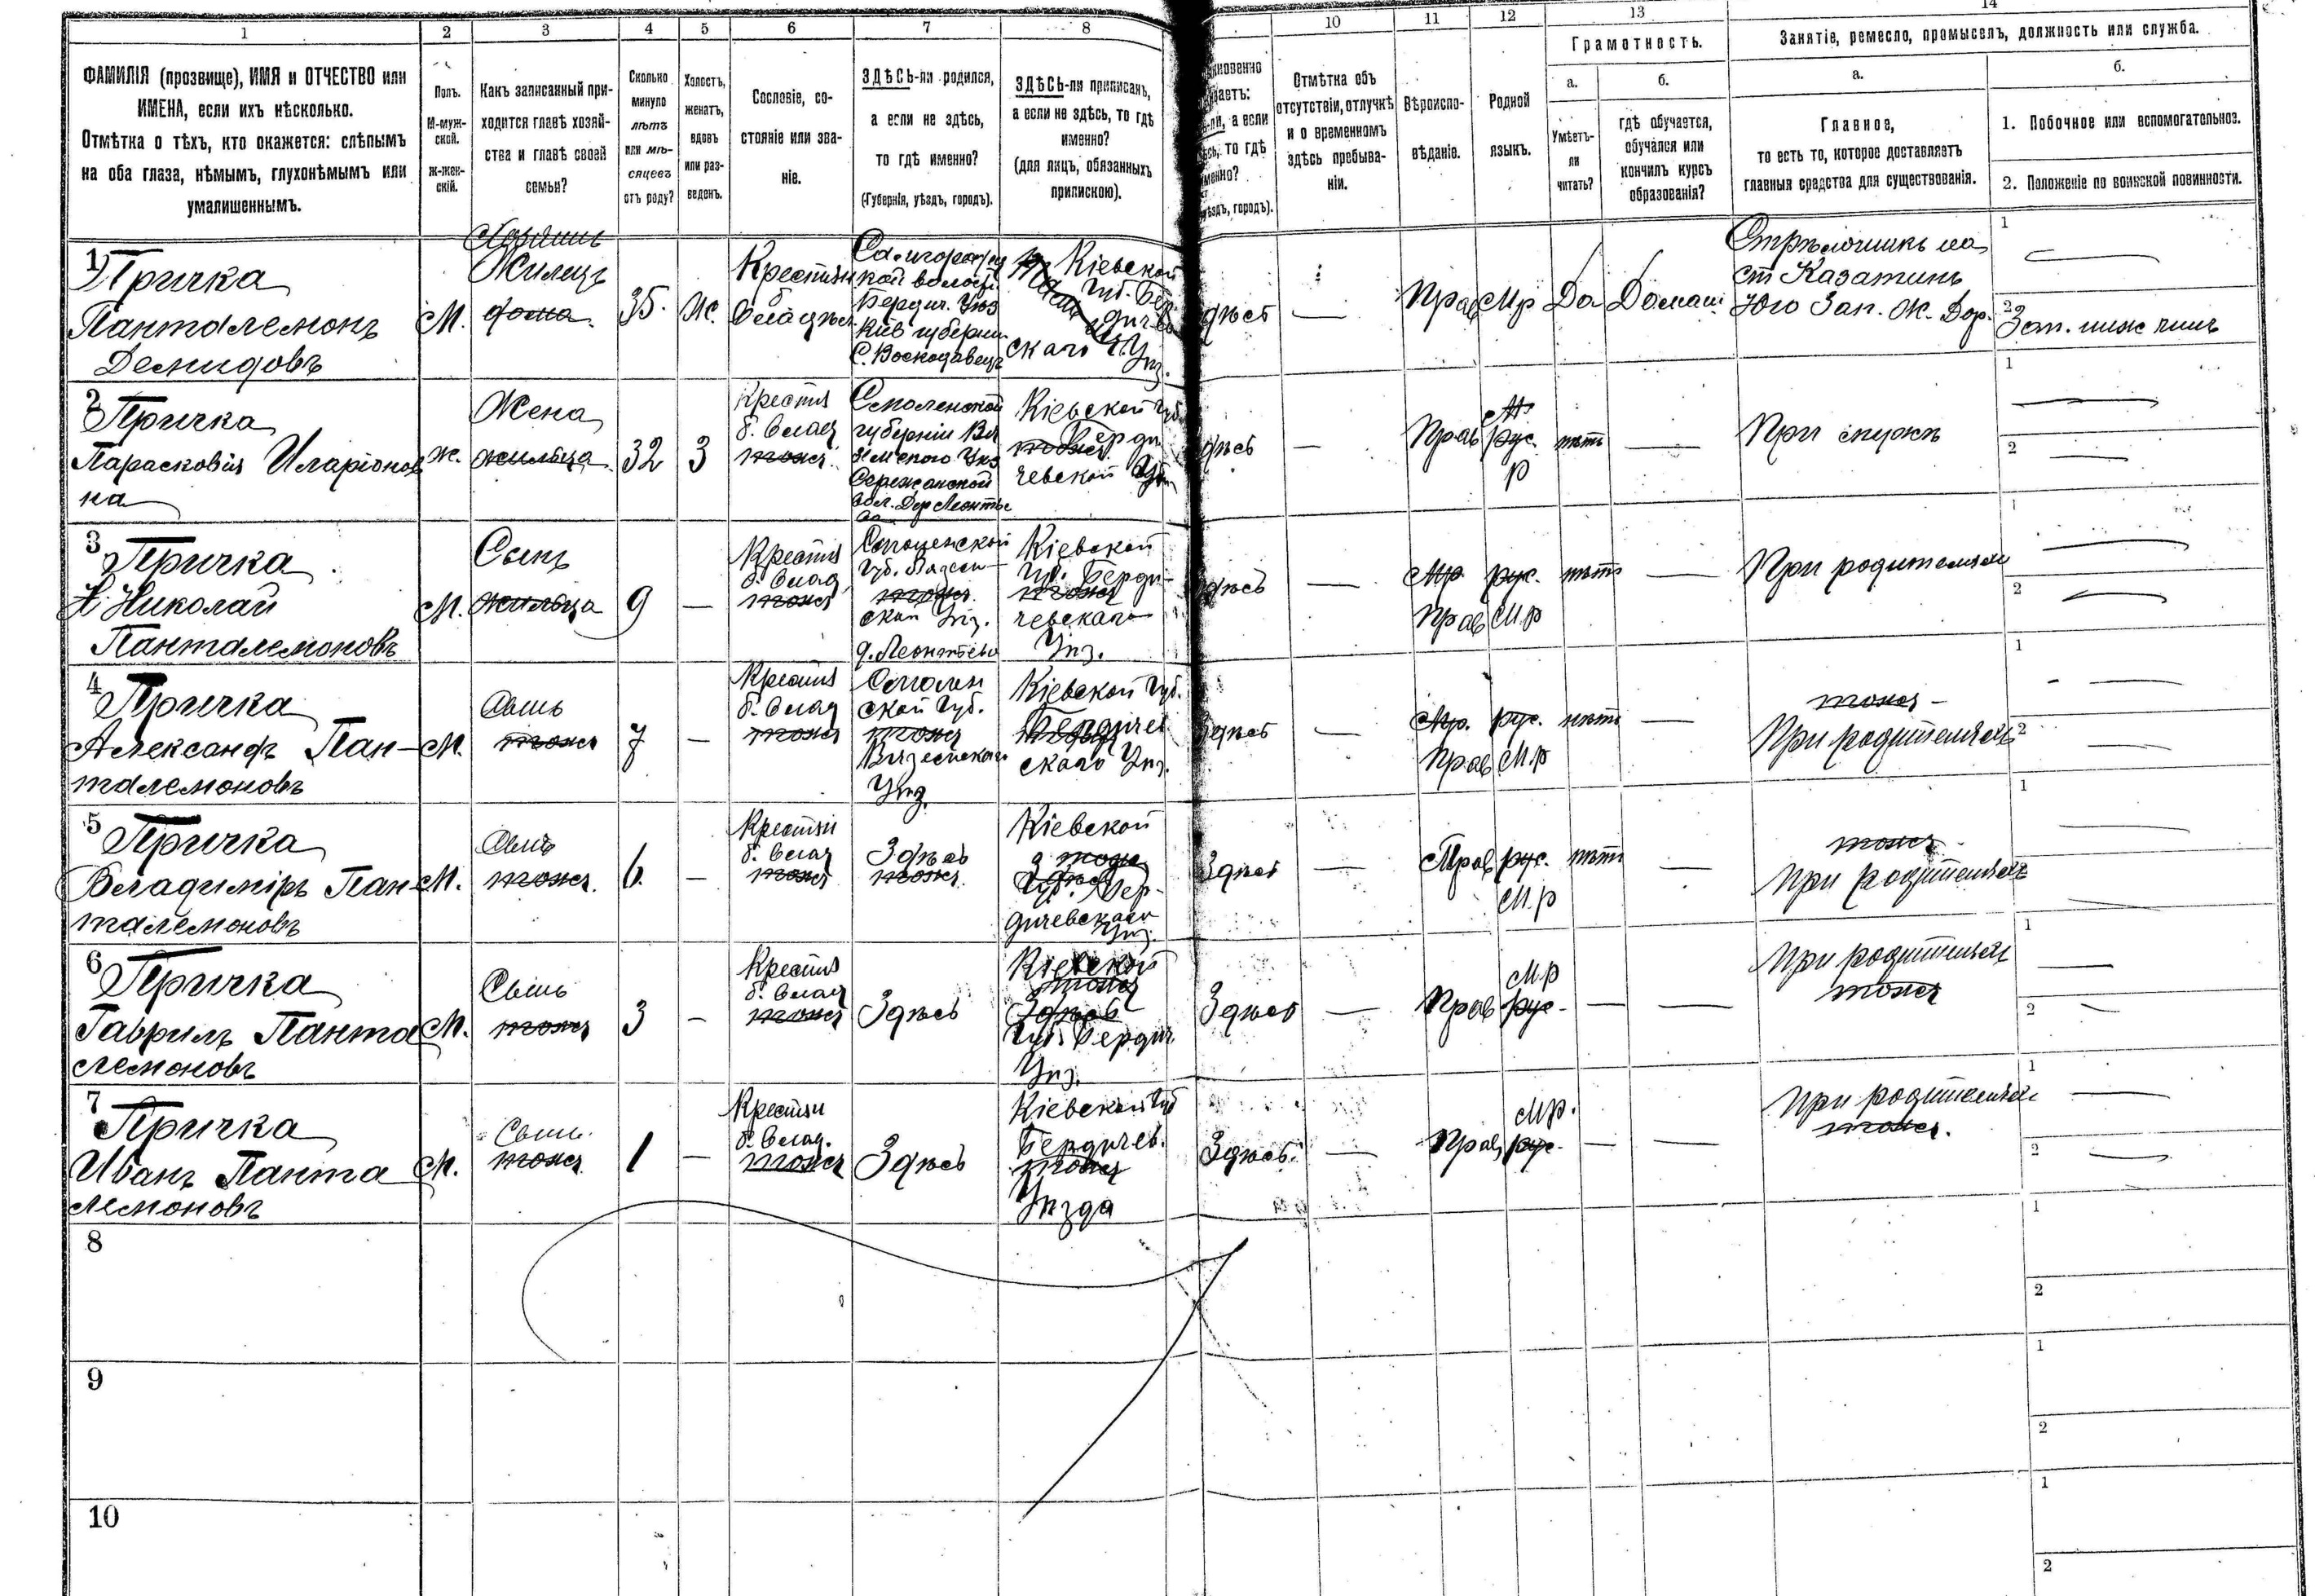 1 2 3 4 5 6 7 8 10 11 12 13 14
ФАМИЛІЯ (прозвище), ИМЯ и ОТЧЕСТВО или
ИМЕНА, если ихъ нѣсколько.
Отмѣтка о тѣхъ, кто окажется: слѣпымъ
на оба глаза, нѣмымъ, глухонѣмымъ или
умалишеннымъ.
Полъ.
М-муж-
ской.
Ж-жен-
скій.
Какъ записанный при-
ходится главѣ хозяй-
ства и главѣ своей
семьи?
Сколько
минуло
лѣтъ
или мѣ-
сяцевъ
отъ роду?
Холостъ,
женатъ,
вдовъ
или раз-
веденъ.
Сословіе, со-
стояніе или зва-
ніе.
ЗДѢСЬ-ли родился,
а если не здѣсь,
то гдѣ именно?
(Губернія, уѣздъ, городъ).
ЗДѢСЬ-ли приписанъ,
а если не здѣсь, то гдѣ
именно?
(для лицъ, обязанныхъ
припискою).
а если
то гдѣ
уѣздъ, городъ).
Отмѣтка объ
отсутствіи, отлучкѣ
и о временномъ
здѣсь пребыва-
ніи.
Вѣроиспо-
вѣданіе.
Родной
языкъ.
Грамотность.
а.
Умѣетъ-
ли
читать?
б.
гдѣ обучается,
обучался или
кончилъ курсъ
образованія?
Занятіе, ремесло, промыселъ, должность или служба.
а.
Главное,
то есть то, которое доставляетъ
главныя средства для существованія.
б.
1. Побочное или вспомогательное.
2. Положеніе по воинской повинности.
1
Причка
Панталемонъ
Демидовъ
М.
Хозяинъ
Жилецъ
дома
35.
Ж.
Крестьян
Кіевской
Губ. Бер
дичев
скаго Уѣз.
С. Воскодавецъ
здѣсь
—
Прав
Мр
Да
Домаш
Стрѣлочникъ на
ст Казатинъ
Юго Зап. Ж. Дор.
1
2
Зап. ниж чинъ
2
Причка
Парасковія Иларіонов
на
ж.
Жена
жильца
32
З
Крестья
б. влад
тоже
Смоленской
губерніи Вя
земского Уѣз
Кіевской Губ
тоже Берди
чевской
здѣсь
—
Прав
рус.
нѣтъ
—
При мужѣ
1
2
3
Причка
Николай
Панталемоновъ
М.
Сынъ
жильца
9
—
Крестья
б. влад
тоже
Смоленской
Губ.
тоже
ской Уѣз.
д. Леонтьево
Кіевской
Губ. Берди-
тоже
чевскаго
Уѣз.
здѣсь
—
Мр. рус. нѣтъ
Прав Мр
—
При родителяхъ
1
2
4
Причка
Александръ Пан-
талемоновъ
М.
Сынъ
тоже
7
—
Крестья
б. влад
тоже
Смолен
ской Губ.
тоже
Вяземскаго
Уѣз.
Кіевской Губ.
Бердичев
тоже
скаго Уѣз.
Здѣсь
—
Мр. рус. нѣтъ
Прав Мр
—
тоже -
При родителяхъ
1
2
5
Причка
Владиміръ Пан
талемоновъ
М.
Сынъ
тоже.
6.
—
Крестьян
б. влад
тоже
Здѣсь
тоже.
Кіевской
тоже
Здѣсь
Губ. Бер-
дичевскаго
Уѣз.
Здѣсь
—
Прав рус. нѣтъ
М.р
—
тоже
При родителяхъ
1
2
6
Причка
Гаврилъ Панта
лемоновъ
М.
Сынъ
тоже
3
—
Крестья
б. влад
тоже
Здѣсь
Кіевской
тоже
Здѣсь
Губ. Бердич.
Уѣз.
Здѣсь
—
Прав
Мр
рус.
—
—
При родителяхъ
тоже
1
2
7
Причка
Иванъ Панта
лемоновъ
М.
Сынъ.
тоже
1
—
Крестьян
б. влад.
тоже
Здѣсь
Кіевской Губ
Бердичев.
тоже
Уѣзда
Здѣсь.
—
Прав
Мр.
рус.
—
—
При родителяхъ
тоже.
1
2
8
1
2
9
1
2
10
1
2